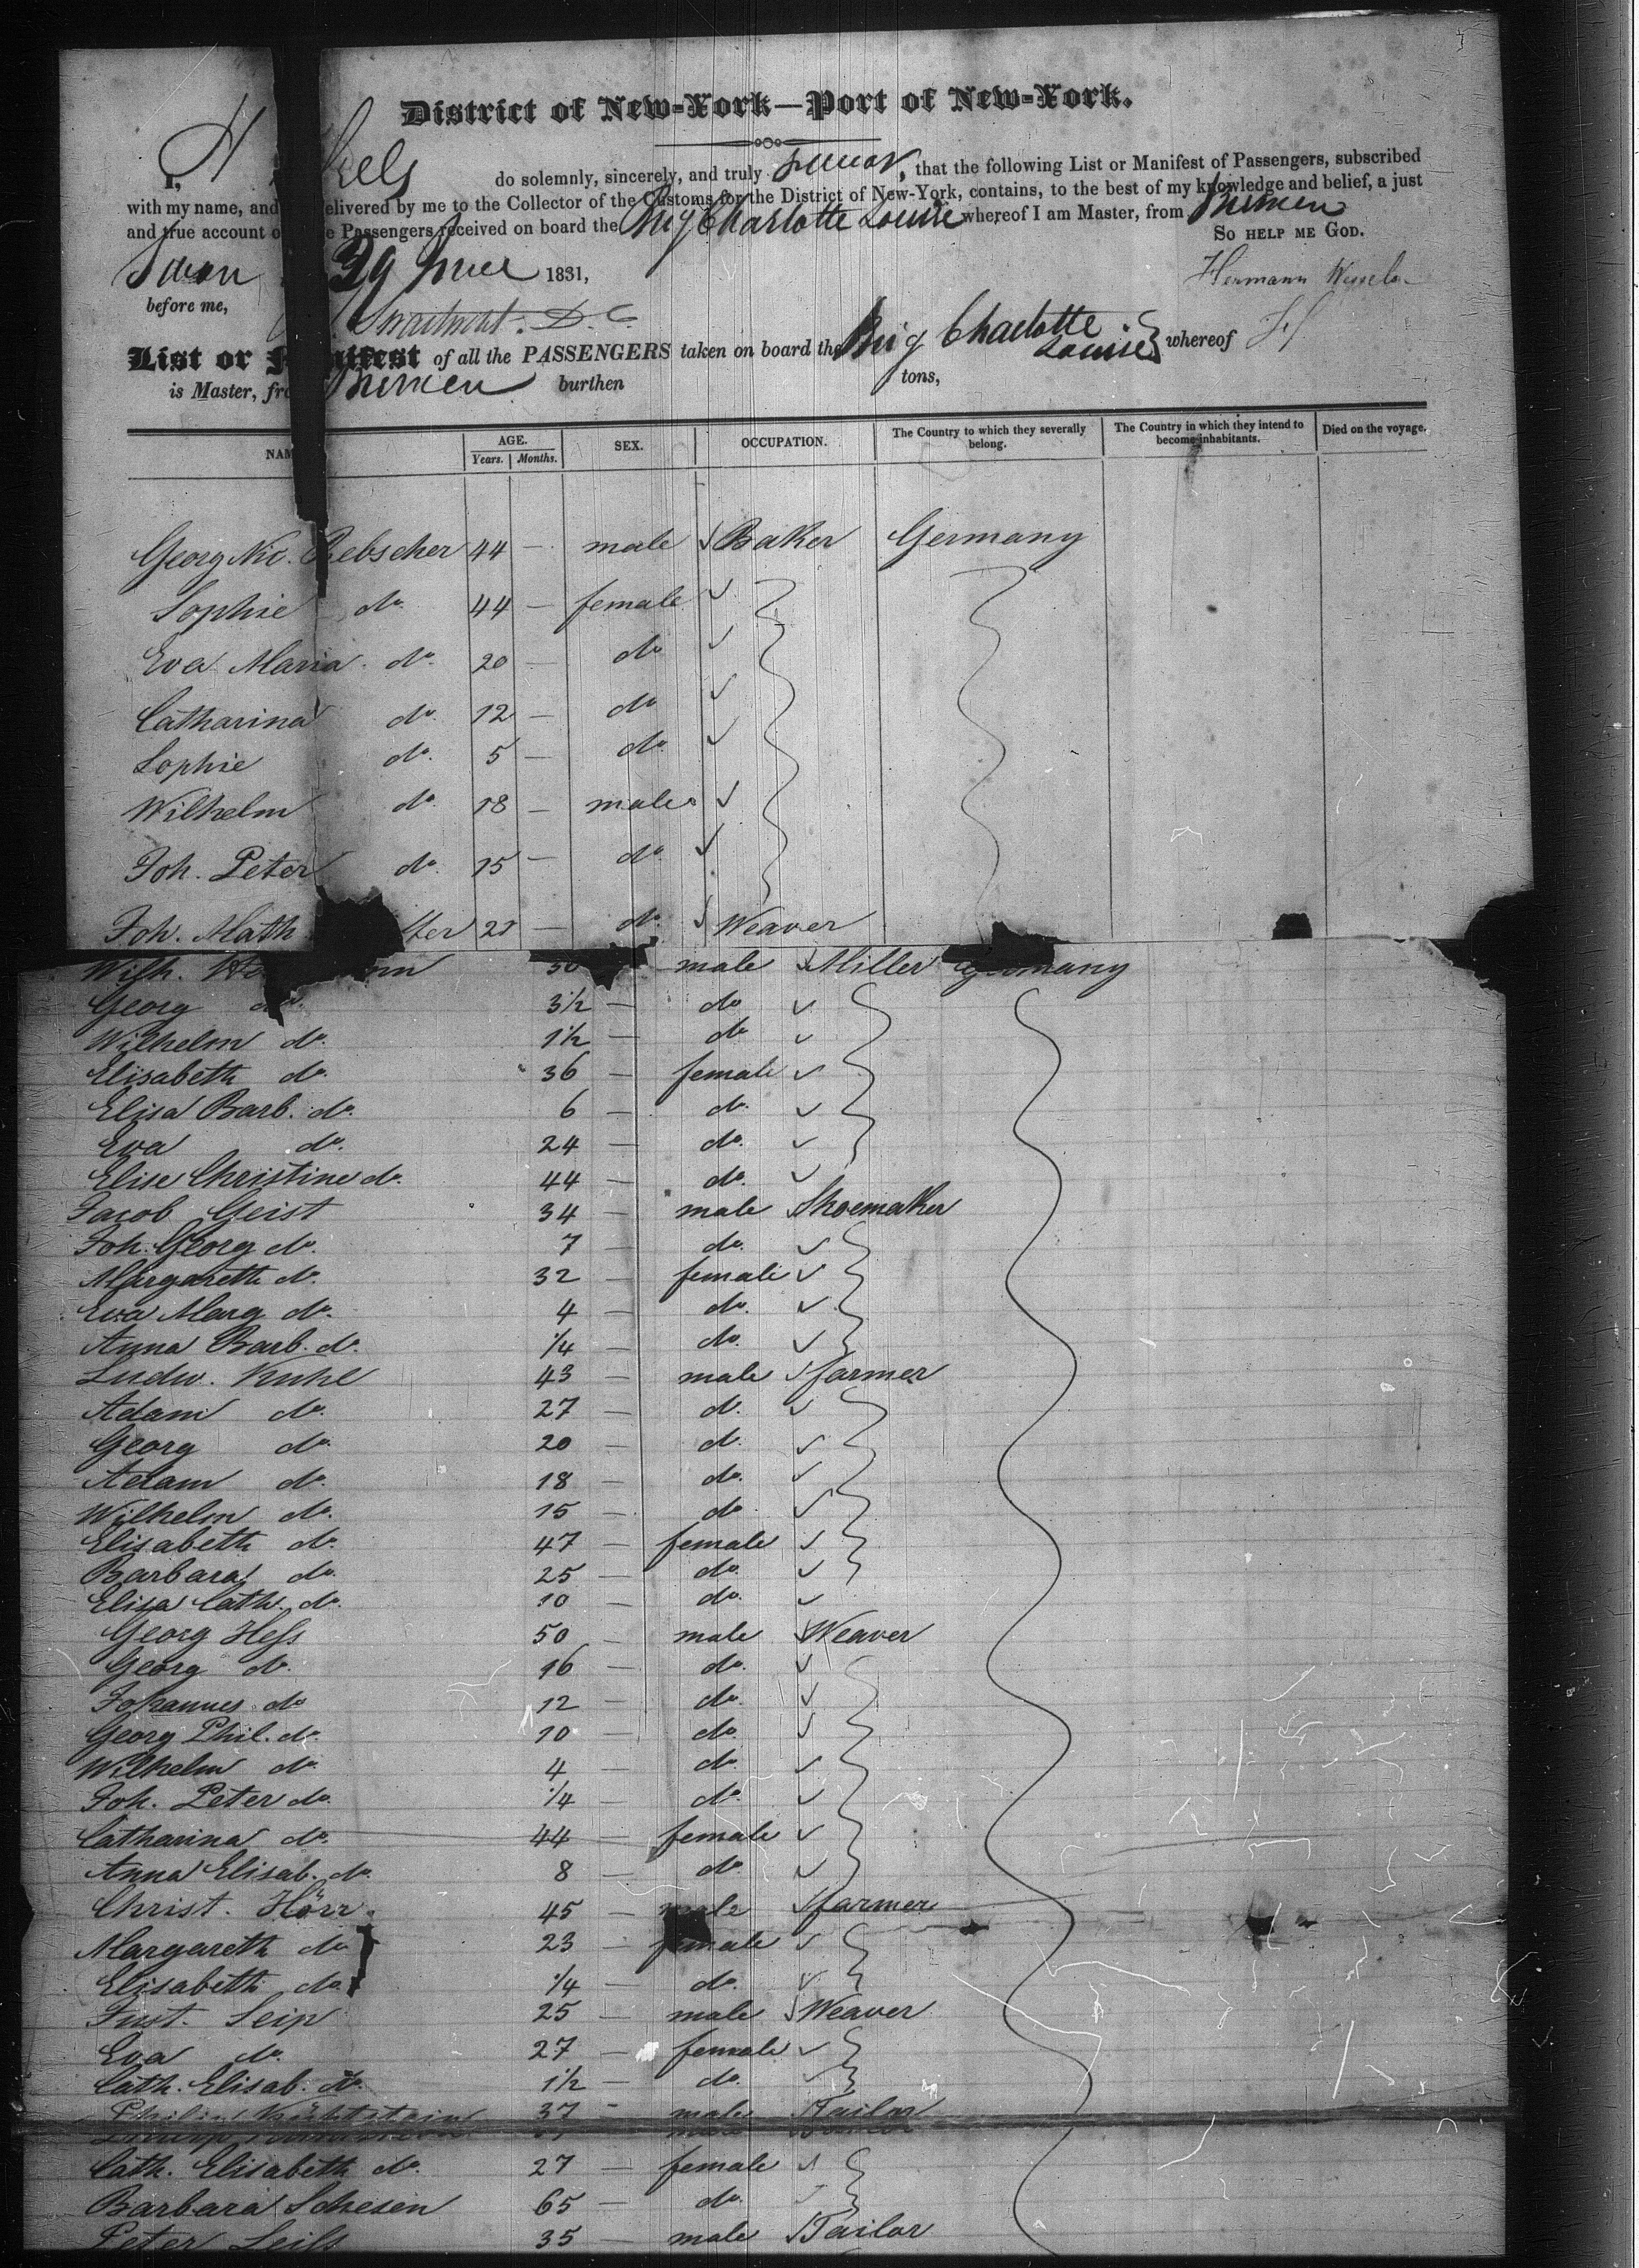 District of New-York—Port of New-York.
I, H
do solemnly, sincerely, and truly swear, that the following List or Manifest of Passengers, subscribed
with my name, and delivered by me to the Collector of the Customs for the District of New-York, contains, to the best of my knowledge and belief, a just
and true account of Passengers received on board the Brig Charlotte Louise whereof I am Master, from Bremen
So help me God.
Sworn 1831,
Hermann
before me,
D. C.
List or Manifest of all the PASSENGERS taken on board the Brig Charlotte Louise whereof H
is Master, from Bremen burthen tons,
NAM AGE. Years. Months. SEX. OCCUPATION. The Country to which they severally belong. The Country in which they intend to become inhabitants. Died on the voyage.
Georg Nic. Rebscher 44 — male Baker Germany
Sophie do. 44 — female
Eva Maria do. 20 — do
Catharina do. 12 — do
Sophie do. 5 — do.
Wilhelm do. 18 — male
Joh. Peter do. 15 — do.
Joh. Math ter — do. Weaver
Wilh. nn male Miller Germany
Georg do. 3½ — do
Wilhelm do. 1½ — do
Elisabeth do. 36 — female
Elisa Barb. do. 6 — do.
Eva do. 24 — do.
Elise Christine do. 44 — do.
Jacob Geist 34 — male Shoemaker
Joh. Georg do. 7 — do.
Margareth do. 32 — female
Eva Marg do. 4 — do.
Anna Barb. do. ¼ — do.
Ludw. Kuhl 43 — male farmer
Adam do. 27 — do.
Georg do. 20 — do.
Adam do. 18 — do.
Wilhelm do. 15 — do.
Elisabeth do. 47 — female
Barbara do. 25 — do.
Elisa Cath. do. 10 — do.
Georg Heſs 50 — male Weaver
Georg do. 16 — do.
Johannes do 12 — do.
Georg Phil. do. 10 — do.
Wilhelm do. 4 — do.
Joh. Peter do. ¼ — do.
Catharina do. 44 — female
Anna Elisab. do. 8 — do.
Christ. Hörr. 45 — male farmer
Margareth do 23 — female
Elisabeth do. ¼ — do.
Just. Seip 25 — male Weaver
Eva do. 27 — female
Cath. Elisab. do. 1½ — do.
Philipp 37 - male Tailor
Cath. Elisabeth do. 27 — female
Barbara 65 — do.
Peter 35 — male Tailor